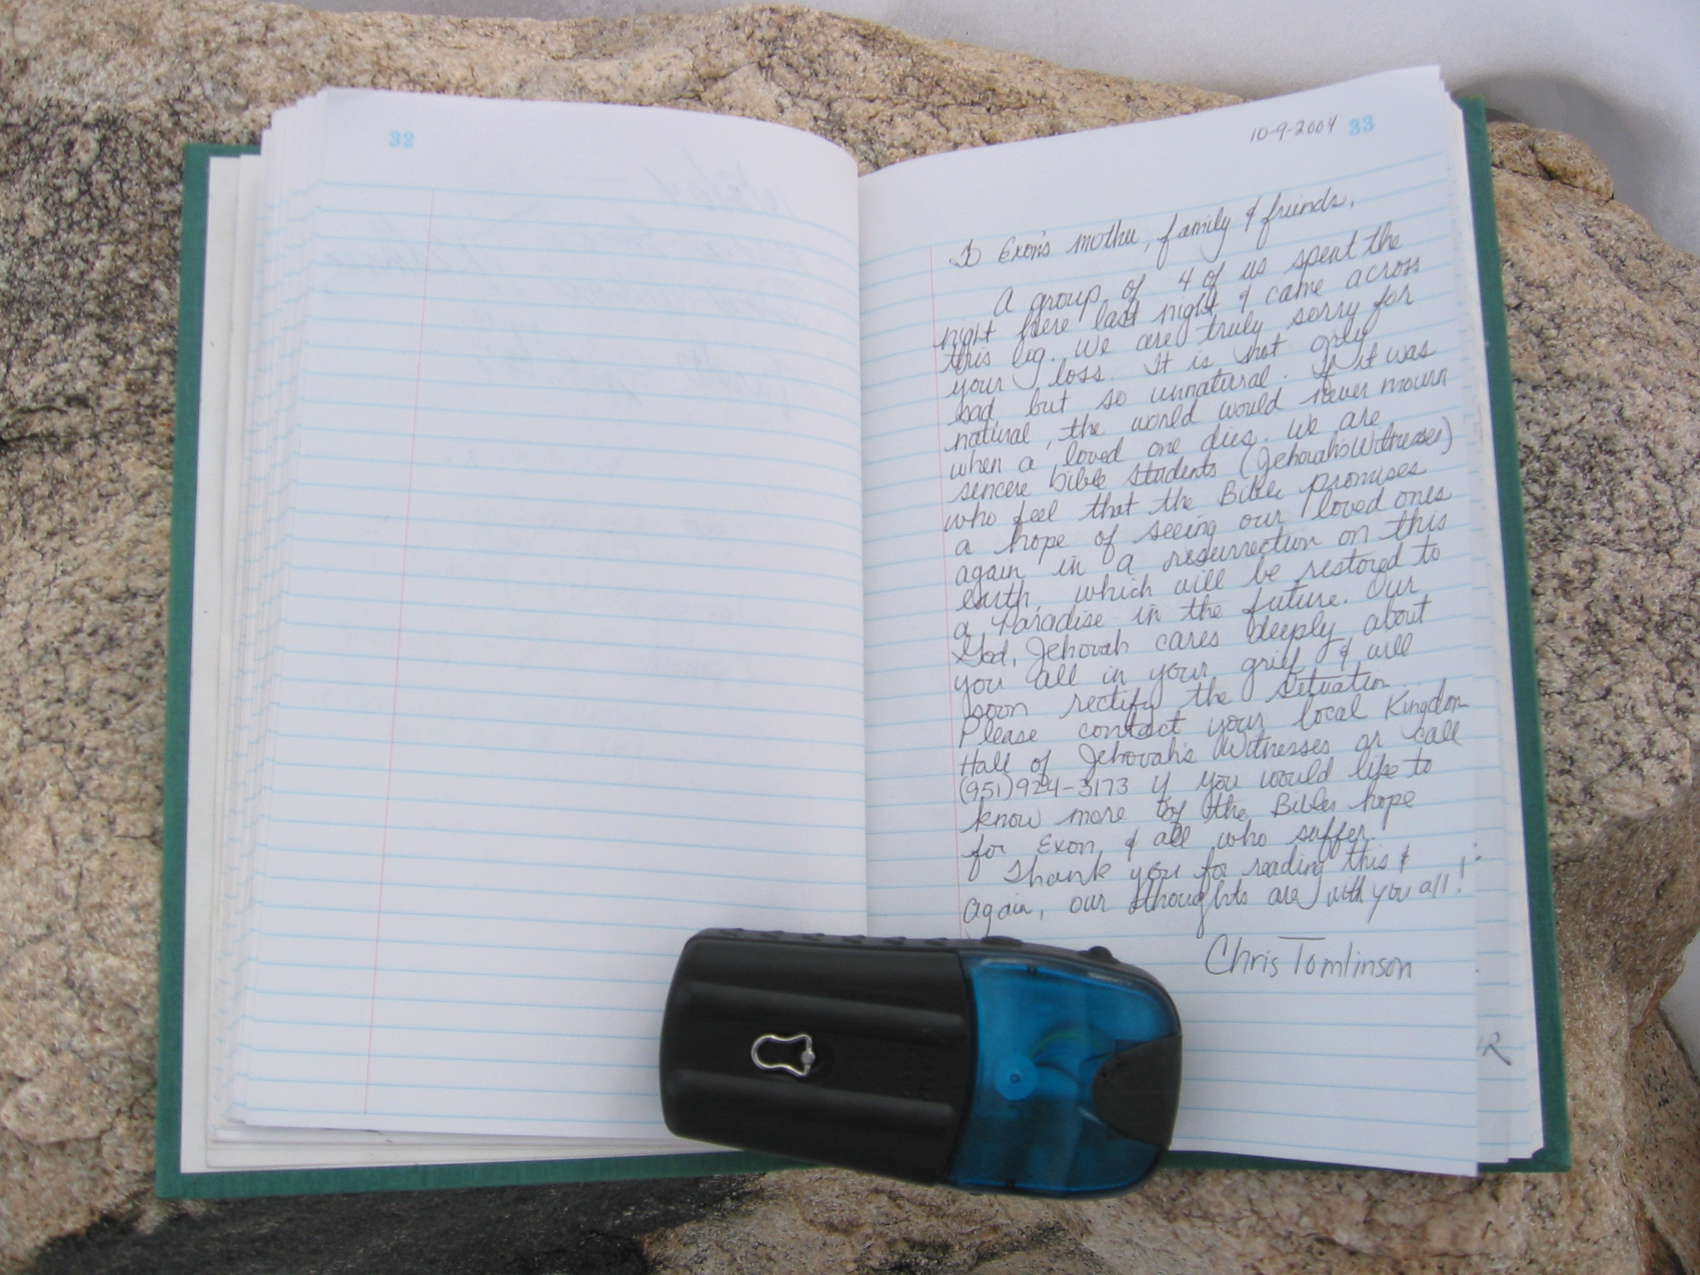 32
10-9-2004 33
To Exon's mother, family & friends,
A group of 4 of us spent the
night here last night & came across
this log. We are truly sorry for
your loss. It is not only
sad but so unnatural. If it was
natural, the world would never mourn
when a loved one dies. We are
sincere bible students (Jehovah's Witnesses)
who feel that the Bible promises
a hope of seeing our loved ones
again in a resurrection on this
earth, which will be restored to
a Paradise in the future. Our
God, Jehovah cares deeply about
you all in your grief & will
soon rectify the situation.
Please contact your local Kingdom
Hall of Jehovah's Witnesses or call
(951)924-3173 if you would like to
know more of the Bibles hope
for Exon, & all who suffer.
Thank you for reading this &
again, our thoughts are with you all!
Chris Tomlinson
R